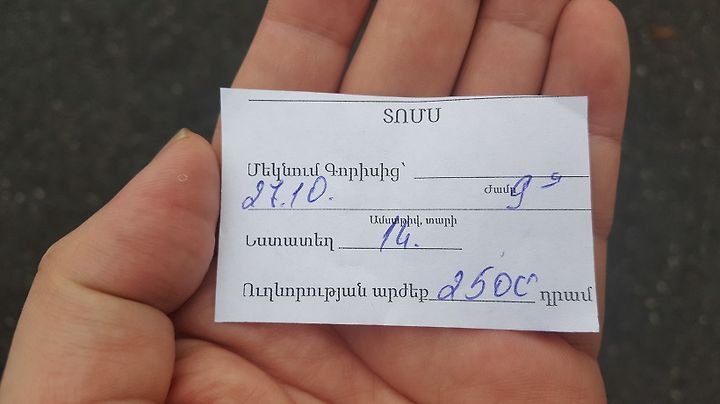 ՏՈՄՍ
Մեկնում Գորիսից՝
Ժամը 9
27.10.
Ամսաթիվ, տարի
Նստատեղ 14.
Ուղևորության արժեք 2500 դրամ